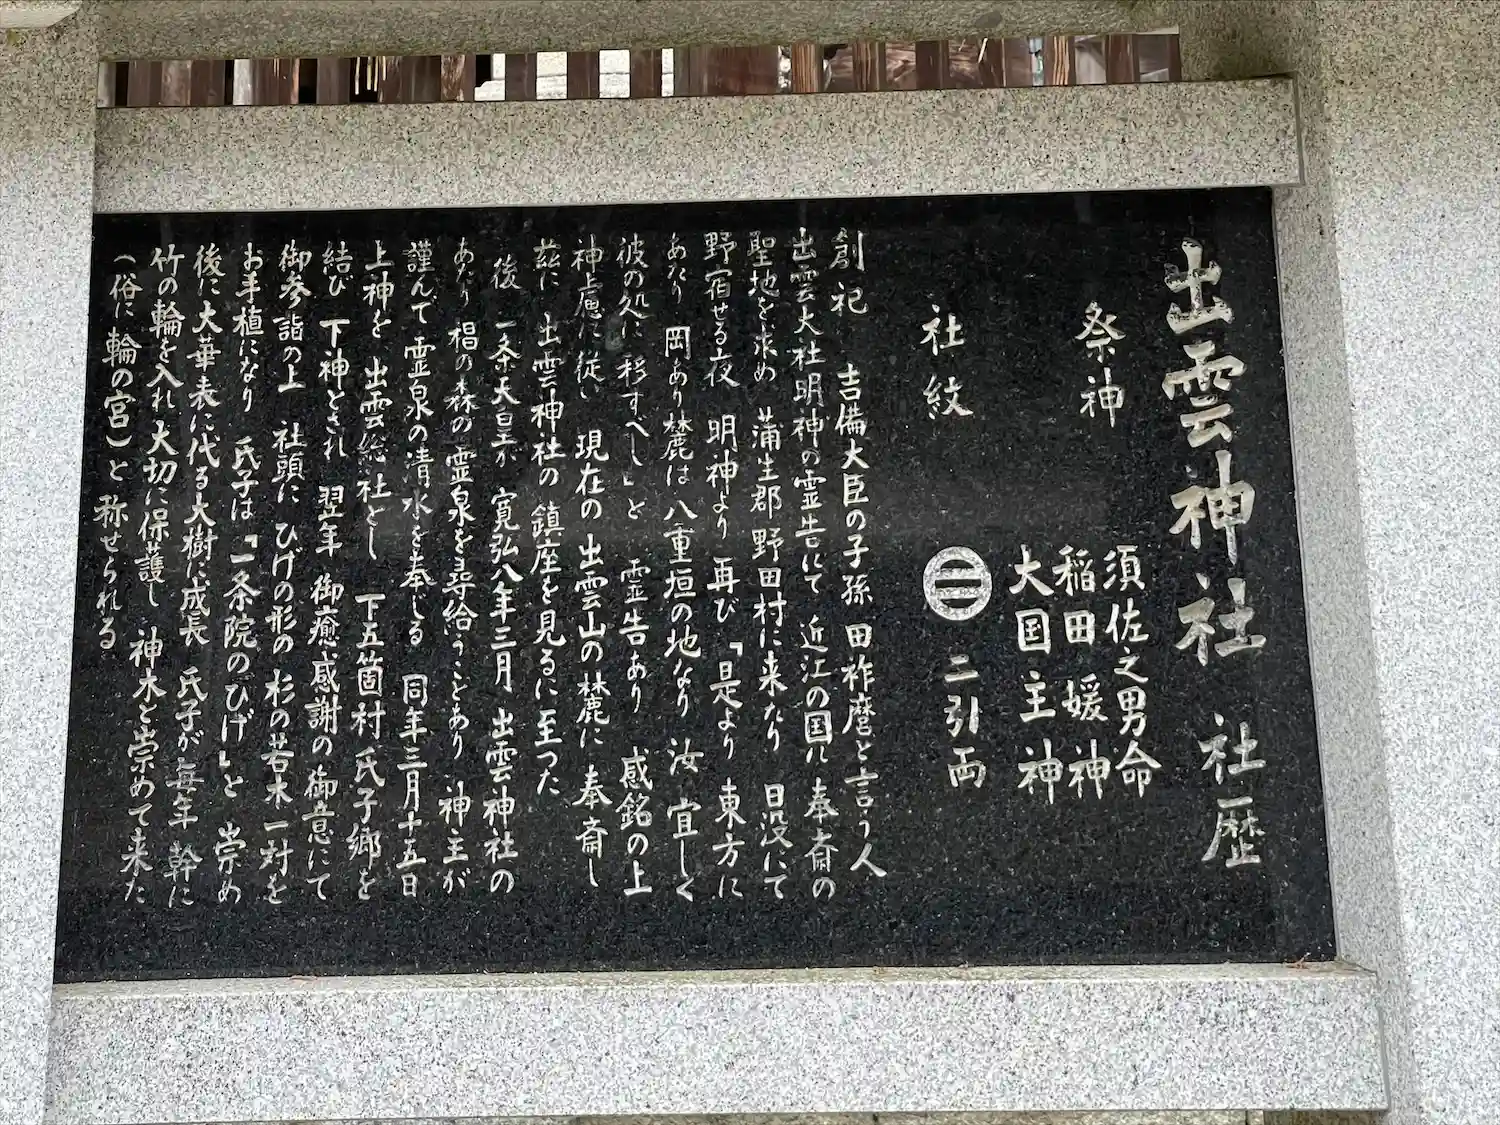 出雲神社 社歴
祭神 須佐之男命
稲田媛神
大国主神
社紋 二引両
創祀 吉備大臣の子孫 田祚麿と言う人
出雲大社明神の霊告にて 近江の国に奉斎の
聖地を求め 蒲生郡野田村に来たり 日没にて
野宿せる夜 明神より再び「是より東方に
あたり 岡あり麓は八重垣の地なり 汝 宜しく
彼の処に移すべし」と 霊告あり 感銘の上
神慮に従し 現在の出雲山の麓に 奉斎し
茲に 出雲神社の鎮座を見るに至った
後 一条天皇が 寛弘八年三月 出雲神社の
あたり 椙の森の霊泉を尋給うことあり 神主が
謹んで霊泉の清水を奉しる 同年三月十五日
上神を 出雲総社とし 下五箇村氏子郷を
結び 下神とされ 翌年 御癒感謝の御意にて
御参詣の上 社頭に ひげの形の 杉の若木一対を
お手植になり 氏子は「一条院のひげ」と 崇め
後に大華表に代る大樹に成長 氏子が毎年 幹に
竹の輪を入れ 大切に保護し 神木と崇めて来た
(俗に輪の宮)と 称せられる